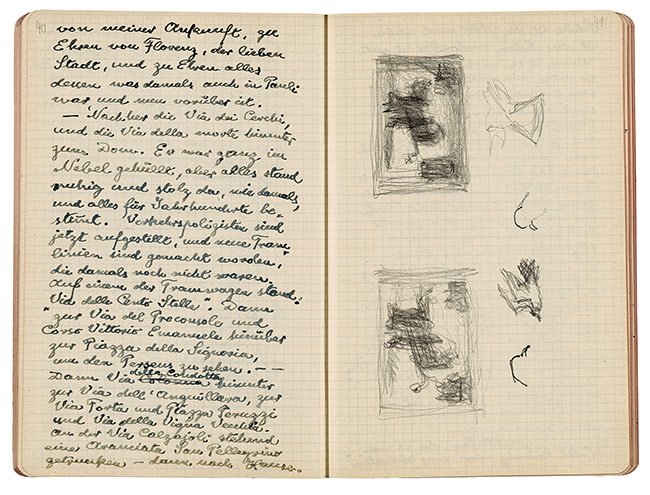 40
von meiner Ankunft, zu
Ehren von Florenz, der lieben
Stadt, und zu Ehren alles
dessen was damals auch in Pauli
war und nun vorüber ist.
— Nachher die Via dei Cerchi,
und die Via della morte hinunter
zum Dom. Er war ganz im
Nebel gehüllt, aber alles stand
ruhig und stolz da, wie damals,
und alles für Jahrhunderte be-
stimmt. Verkehrspolizisten sind
jetzt aufgestellt, und neue Tram-
linien sind gemacht worden,
die damals noch nicht waren.
Auf einem der Tramwagen stand:
"Via delle Cento Stelle". Dann
zur Via del Proconsolo und
Corso Vittorio Emanuele hinüber
zur Piazza della Signoria,
um den Perseus zu sehen. — —
della Condotta
Dann Via Colonna hinunter
zur Via dell'Anguillara, zur
Via Torta und Piazza Peruzzi
und Via della Vigna Vecchia.
An der Via Calzajoli stehend
eine Aranciata San Pellegrino
getrunken — dann nach Hause.
41